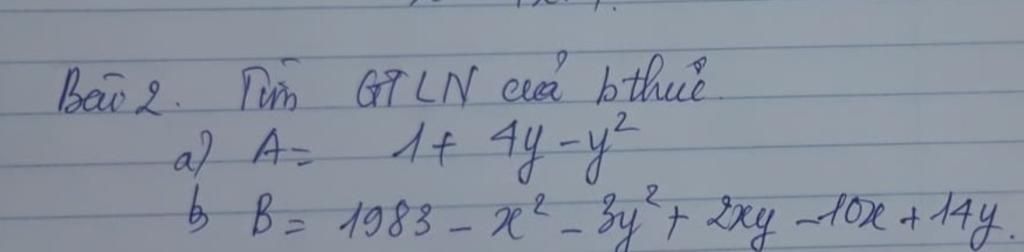 Bài 2. Tìm GTLN của bthức.
a) A = 1 + 4y - y²
b) B = 1983 - x² - 3y² + 2xy - 10x + 14y.